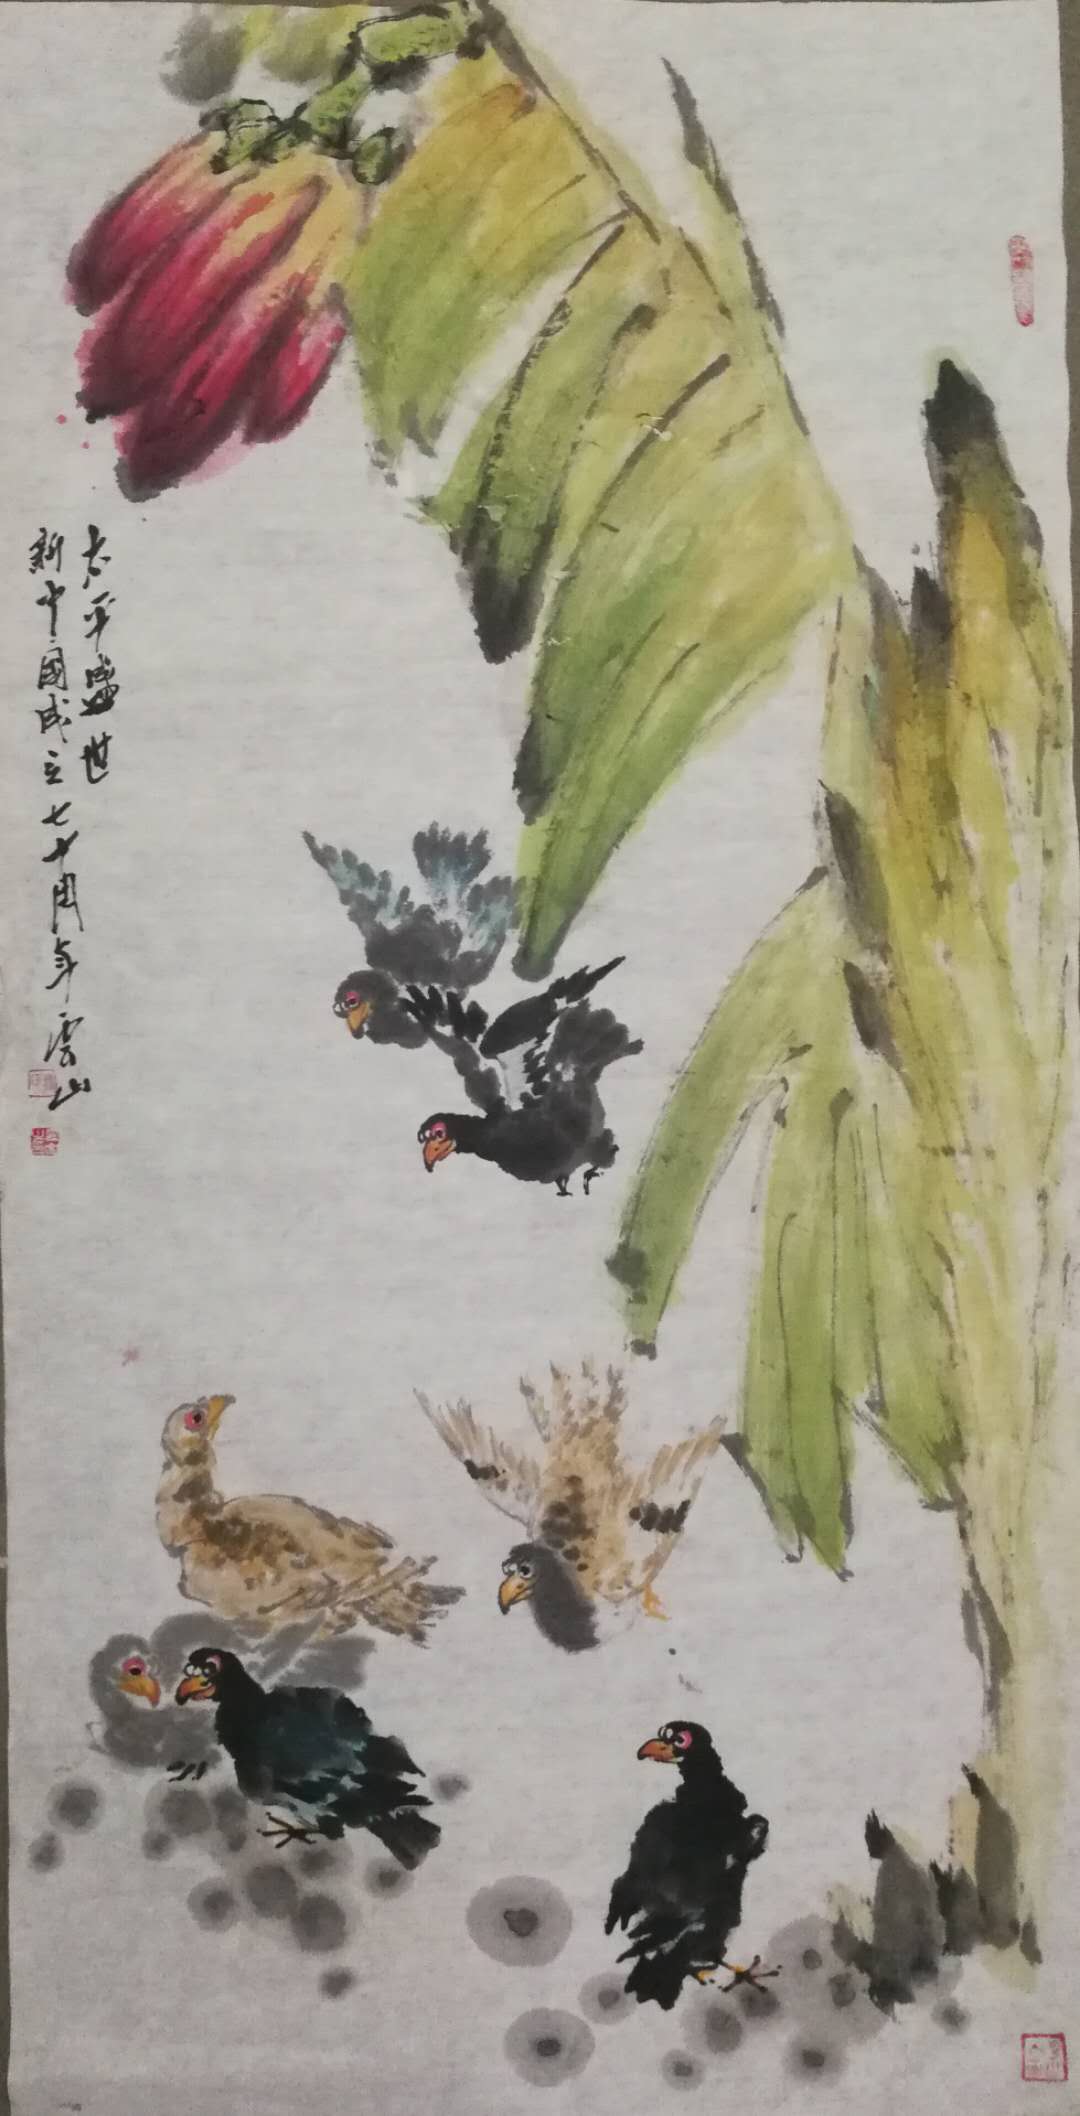 太平盛世
新中國成立七十周年雲山